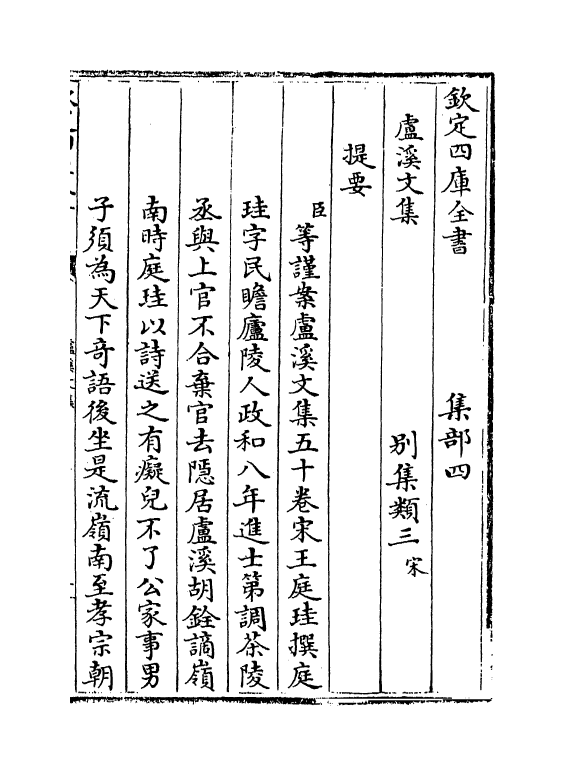 欽定四庫全書　集部四
盧溪文集　別集類三 宋
提要
臣等謹案盧溪文集五十卷宋王庭珪撰庭
珪字民瞻廬陵人政和八年進士第調茶陵
丞與上官不合棄官去隱居盧溪胡銓謫嶺
南時庭珪以詩送之有癡兒不了公家事男
子須為天下奇語後坐是流嶺南至孝宗朝